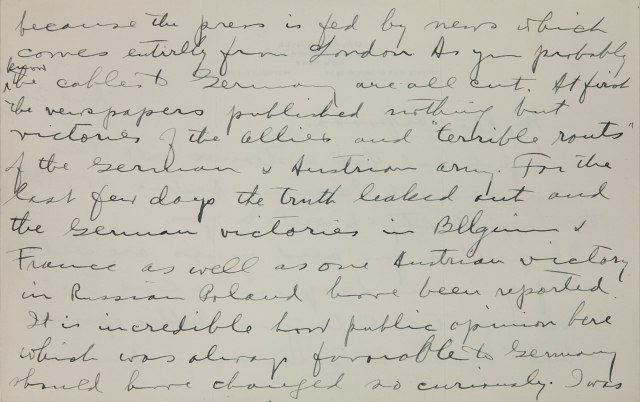 because the press is fed by news which
comes entirely from London As you probably
know
the cables to Germany are all cut. At first
the newspapers published nothing but
victories of the allies and "terrible routs"
of the German & Austrian army. For the
last few days the truth leaked out and
the German victories in Bllgium &
France as well as one Austrian victory
in Russian Poland have been reported.
It is incredible how public opinion here
which was always favorable to Germany
should have changed so curiously. I was